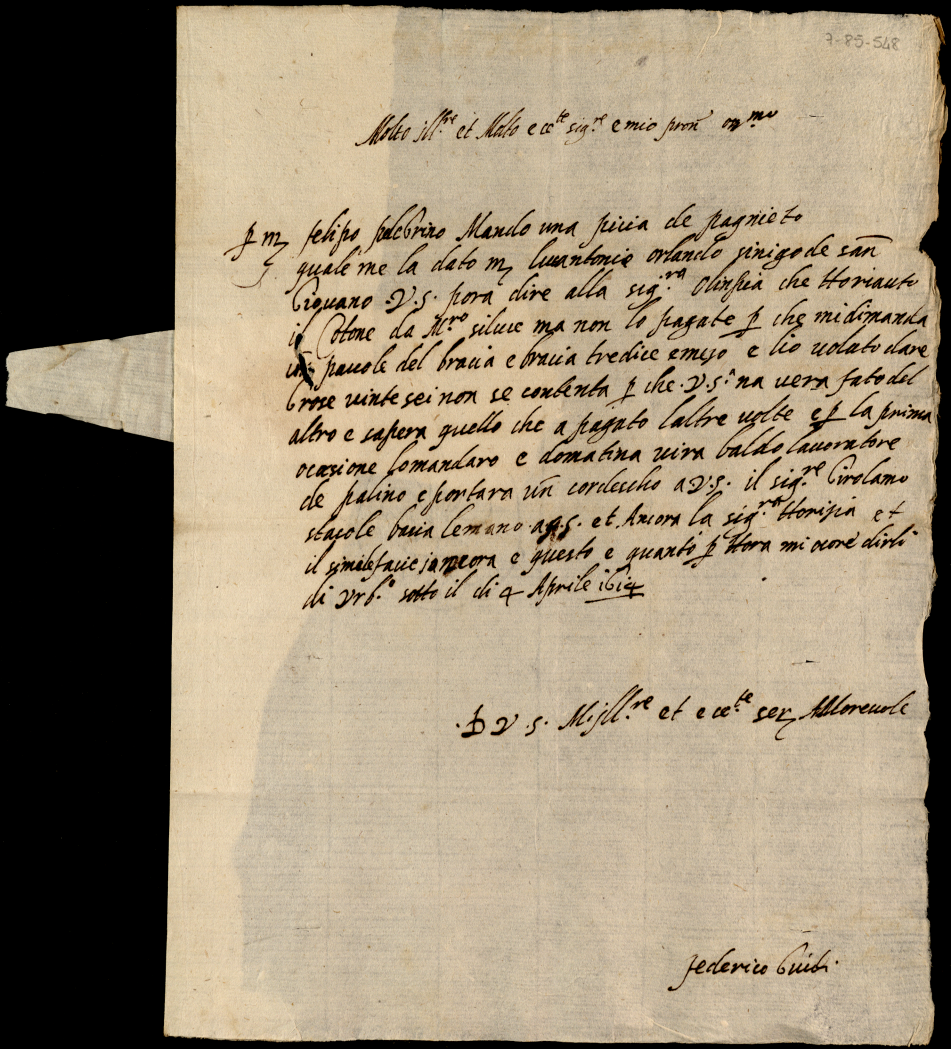 7-85-548
Molto Ill.re et Molto ecc.te sig.re e mio pron on.mo
p m felipo pelegrino Mando una picia de pagnieto
quale me la dato m luantonio orlando sinigo de san
Giouano .V.S. pora dire alla sig.ra Olinpia che Horiauto
il Cotone da M.ro siluie ma non lo pagate p che midimanda
un pauole del bracia e bracia tredice emeso e lio uoluto dare
Grose uinte sei non se contenta p che .V.S.a na uera fato del
altro e sapera quello che a pagato laltre uolte e p la prima
ocasione lomandaro e domatina uira baldo lauoratore
de palino e portara un cordescho a V.S. il sig.re Girolamo
stacole bacia lemano a V.S. et Ancora la sig.ra Horisia et
il simile facio io ancora e questo e quanto p Hora mi ocore dirli
di Vrb.o sotto il di 4 Aprile 1614
.D V.S. M. Ill.re et ecc.te ser Amoreuole
federico Guidi